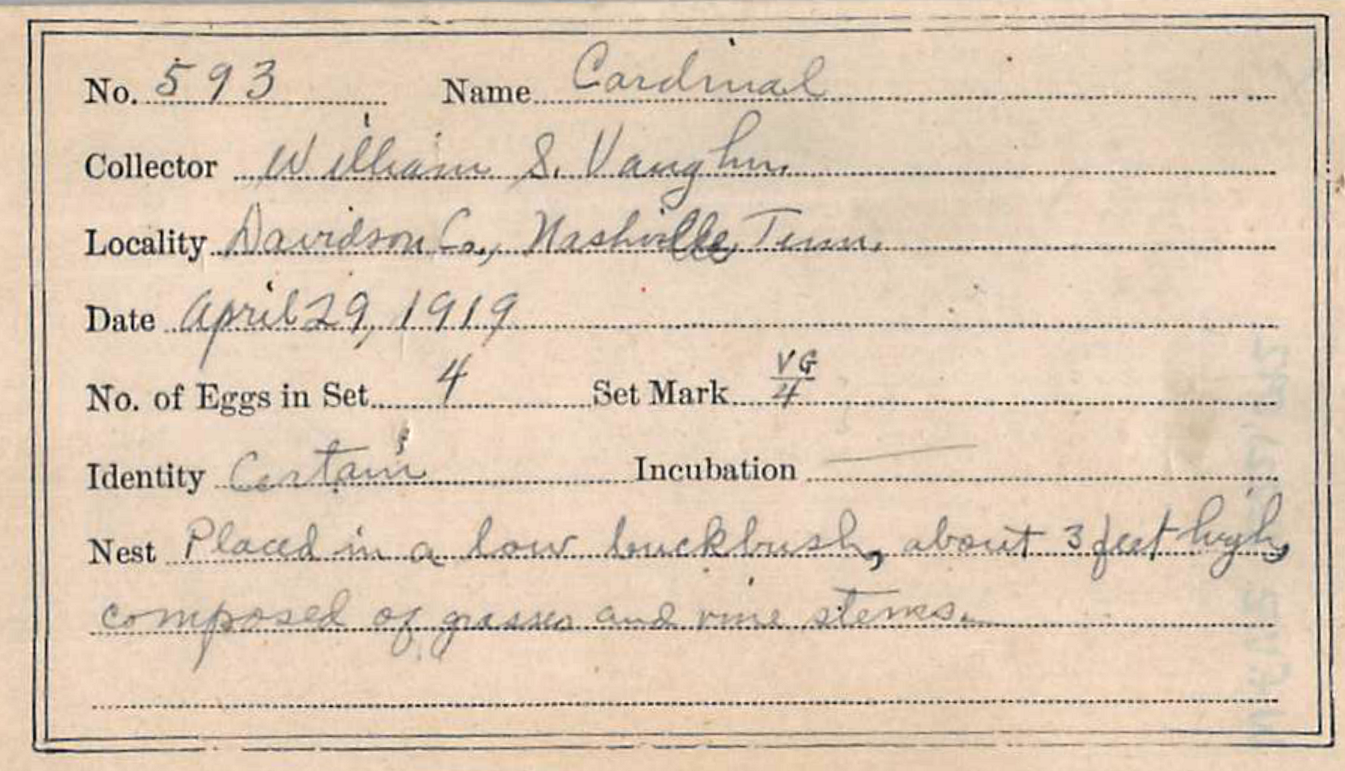 No. 593 Name Cardinal
Collector William S. Vaughn.
Locality Davidson Co., Nashville, Tenn.
Date April 29, 1919
No. of Eggs in Set 4 Set Mark VG/4
Identity Certain Incubation —
Nest Placed in a low buckbush, about 3 feet high,
composed of grasses and vine stems.